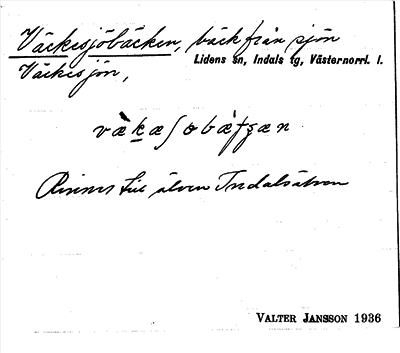 Väckesjöbäcken, bäck från sjön
Lidens sn, Indals tg, Västernorrl. l.
Väckesjön,
Rinner till älven Indalsälven
VALTER JANSSON 1936